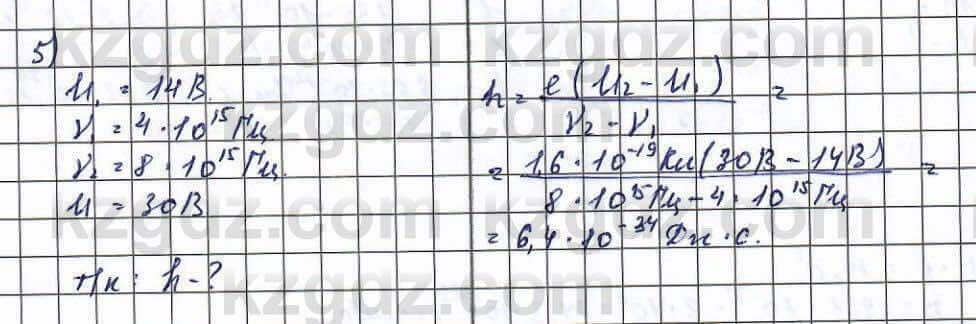 5)
U₁ = 14В.
ν₁ = 4 · 10¹⁵ Гц
ν₂ = 8 · 10¹⁵ Гц.
U = 30В
Нк: h - ?
h = e(U₂ - U₁) / ν₂ - ν₁ =
= 1,6 · 10⁻¹⁹ Кл(30В - 14В) / 8 · 10¹⁵ Гц - 4 · 10¹⁵ Гц =
= 6,4 · 10⁻³⁴ Дж · с.
kzgdz.com kzgdz.com
kzgdz.com
kzgdz.com kzgdz.com
kzgdz.com